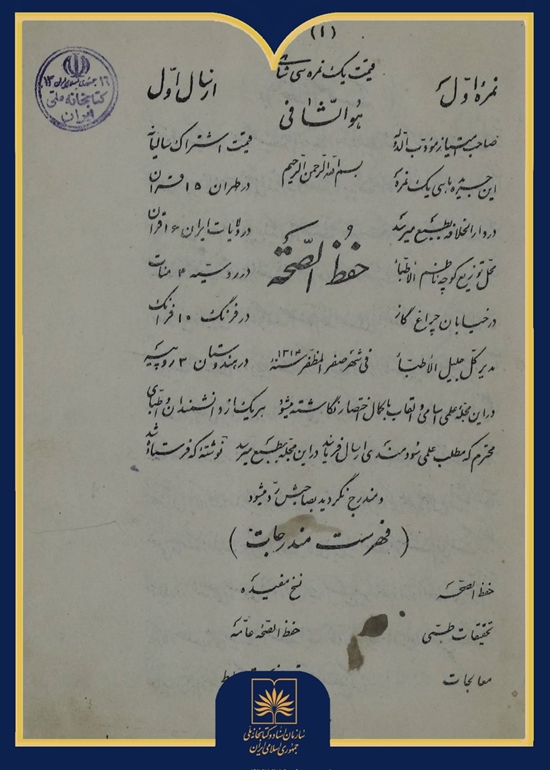 (۱)
نمرهٔ اوّل قیمت یک نمره سی شاهی از سال اوّل
هوالشافی
صاحب امتیاز مؤدب الدوله بسم الله الرحمن الرحیم قیمت اشتراک سالیانه
این جریده ماهی یک نمرهٔ در طهران ۱۵ قران
در دارالخلافه بطبع میرسد حفظ الصّحّه در ولایات ایران ۱۶ قران
محل توزیع کوچه ناظم الاطبّاء در روسیّه ۴ منات
در خیابان چراغ گاز در فرنگ ۱۰ فرانک
مدیر کل جلیل الاطبّاء فی شهر صفر المظفر سنه ۱۳۲۴ در هندوستان ۳ روپیه
در این مجله علمی اسامی و القاب با کمال اختصار نگاشته میشود هر یک از دانشمندان و اطبای
محترم که مطلب علمی سودمندی ارسال فرمایند در این مجله بطبع میرسد نوشتهٔ که فرستاده شد
و مندرج نگردید بصاحبش رد میشود
(فهرست مندرجات)
حفظ الصّحّه نسخ مفیده
تحقیقات طبّی حفظ الصحه عامّه
معالجات
کتابخانه ملی
ایران
سازمان اسناد و کتابخانه ملی
جمهوری اسلامی ایران